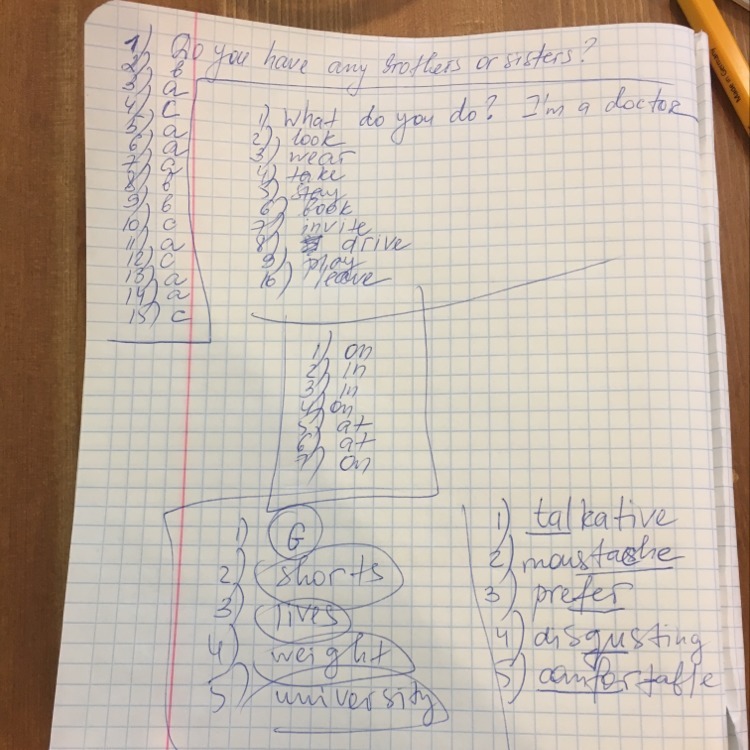 1) Do you have any brothers or sisters?
2) b
3) a
4) c
5) a
6) a
7) a
8) b
9) b
10) c
11) a
12) c
13) a
14) a
15) c
1) What do you do? I'm a doctor
2) look
3) wear
4) take
5) stay
6) book
7) invite
8) drive
9) play
10) leave
1) on
2) in
3) in
4) on
5) at
6) at
7) on
1) G
2) shorts
3) lives
4) weight
5) university
1) talkative
2) moustache
3) prefer
4) disgusting
5) comfortable
Made in Germany